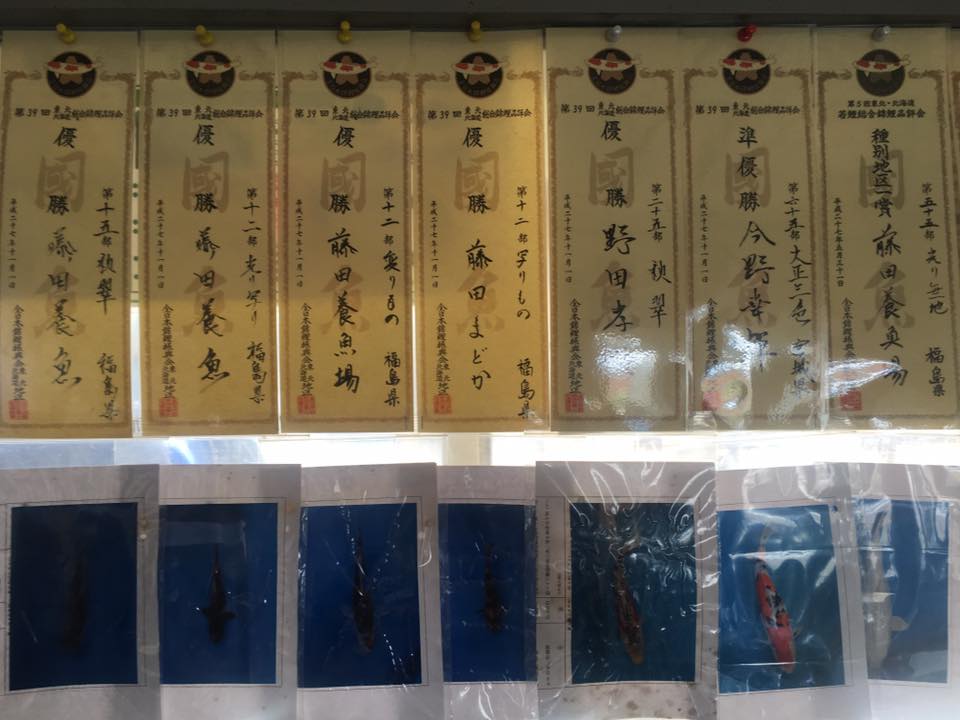 第39回 東北北海道 総合錦鯉品評会
優勝
第十五部 秋翠
福島県
藤田養魚
平成二十七年十一月一日
全日本錦鯉振興会東北北海道地区
第39回 東北北海道 総合錦鯉品評会
優勝
第十二部 光り写り
福島県
藤田養魚
平成二十七年十一月一日
全日本錦鯉振興会東北北海道地区
第39回 東北北海道 総合錦鯉品評会
優勝
第十二部 変りもの
福島県
藤田養魚場
平成二十七年十一月一日
全日本錦鯉振興会東北北海道地区
第39回 東北北海道 総合錦鯉品評会
優勝
第十二部 写りもの
福島県
藤田まどか
平成二十七年十一月一日
全日本錦鯉振興会東北北海道地区
第39回 東北北海道 総合錦鯉品評会
優勝
第二十五部 秋翠
野田孝
平成二十七年十一月一日
全日本錦鯉振興会東北北海道地区
第39回 東北北海道 総合錦鯉品評会
準優勝
第六十五部 大正三色
宮城県
今野幸
平成二十七年十一月一日
全日本錦鯉振興会東北北海道地区
第5回東北・北海道
若鯉総合錦鯉品評会
種別地区一賞
第五十五部 光り無地
福島県
藤田養魚場
平成二十七年五月三十一日
全日本錦鯉振興会東北北海道地区